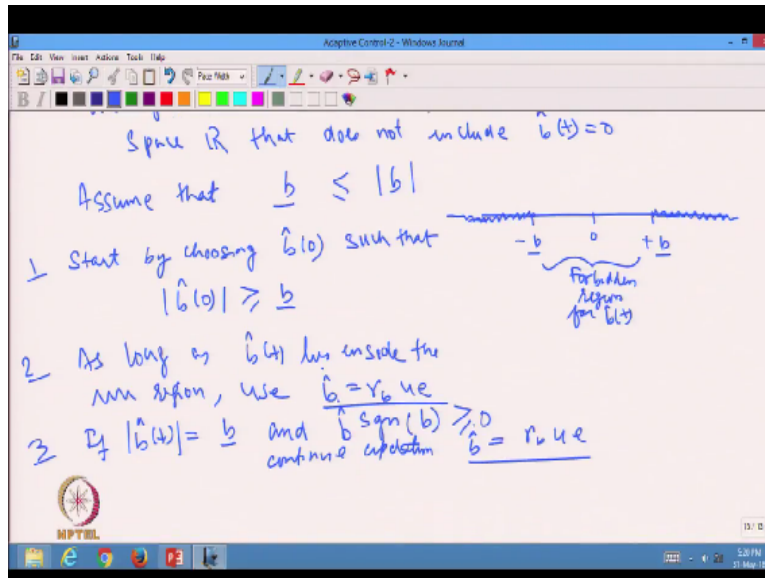 Adaptive Control-2 - Windows Journal
File Edit View Insert Actions Tools Help
Page Width
B I
Space ℝ that does not include b̂(t)=0
Assume that b̲ ≤ |b|
-b̲ 0 +b̲
Forbidden
region
for b̂(t)
1 Start by choosing b̂(0) such that
|b̂(0)| ≥ b̲
2 As long as b̂(t) lies inside the
region, use b̂ = r_b u e
3 If |b̂(t)| = b̲ and b̂ sgn(b) ≥ 0
continue updation b̂ = r_b u e
NPTEL
13 / 13
5:20 PM